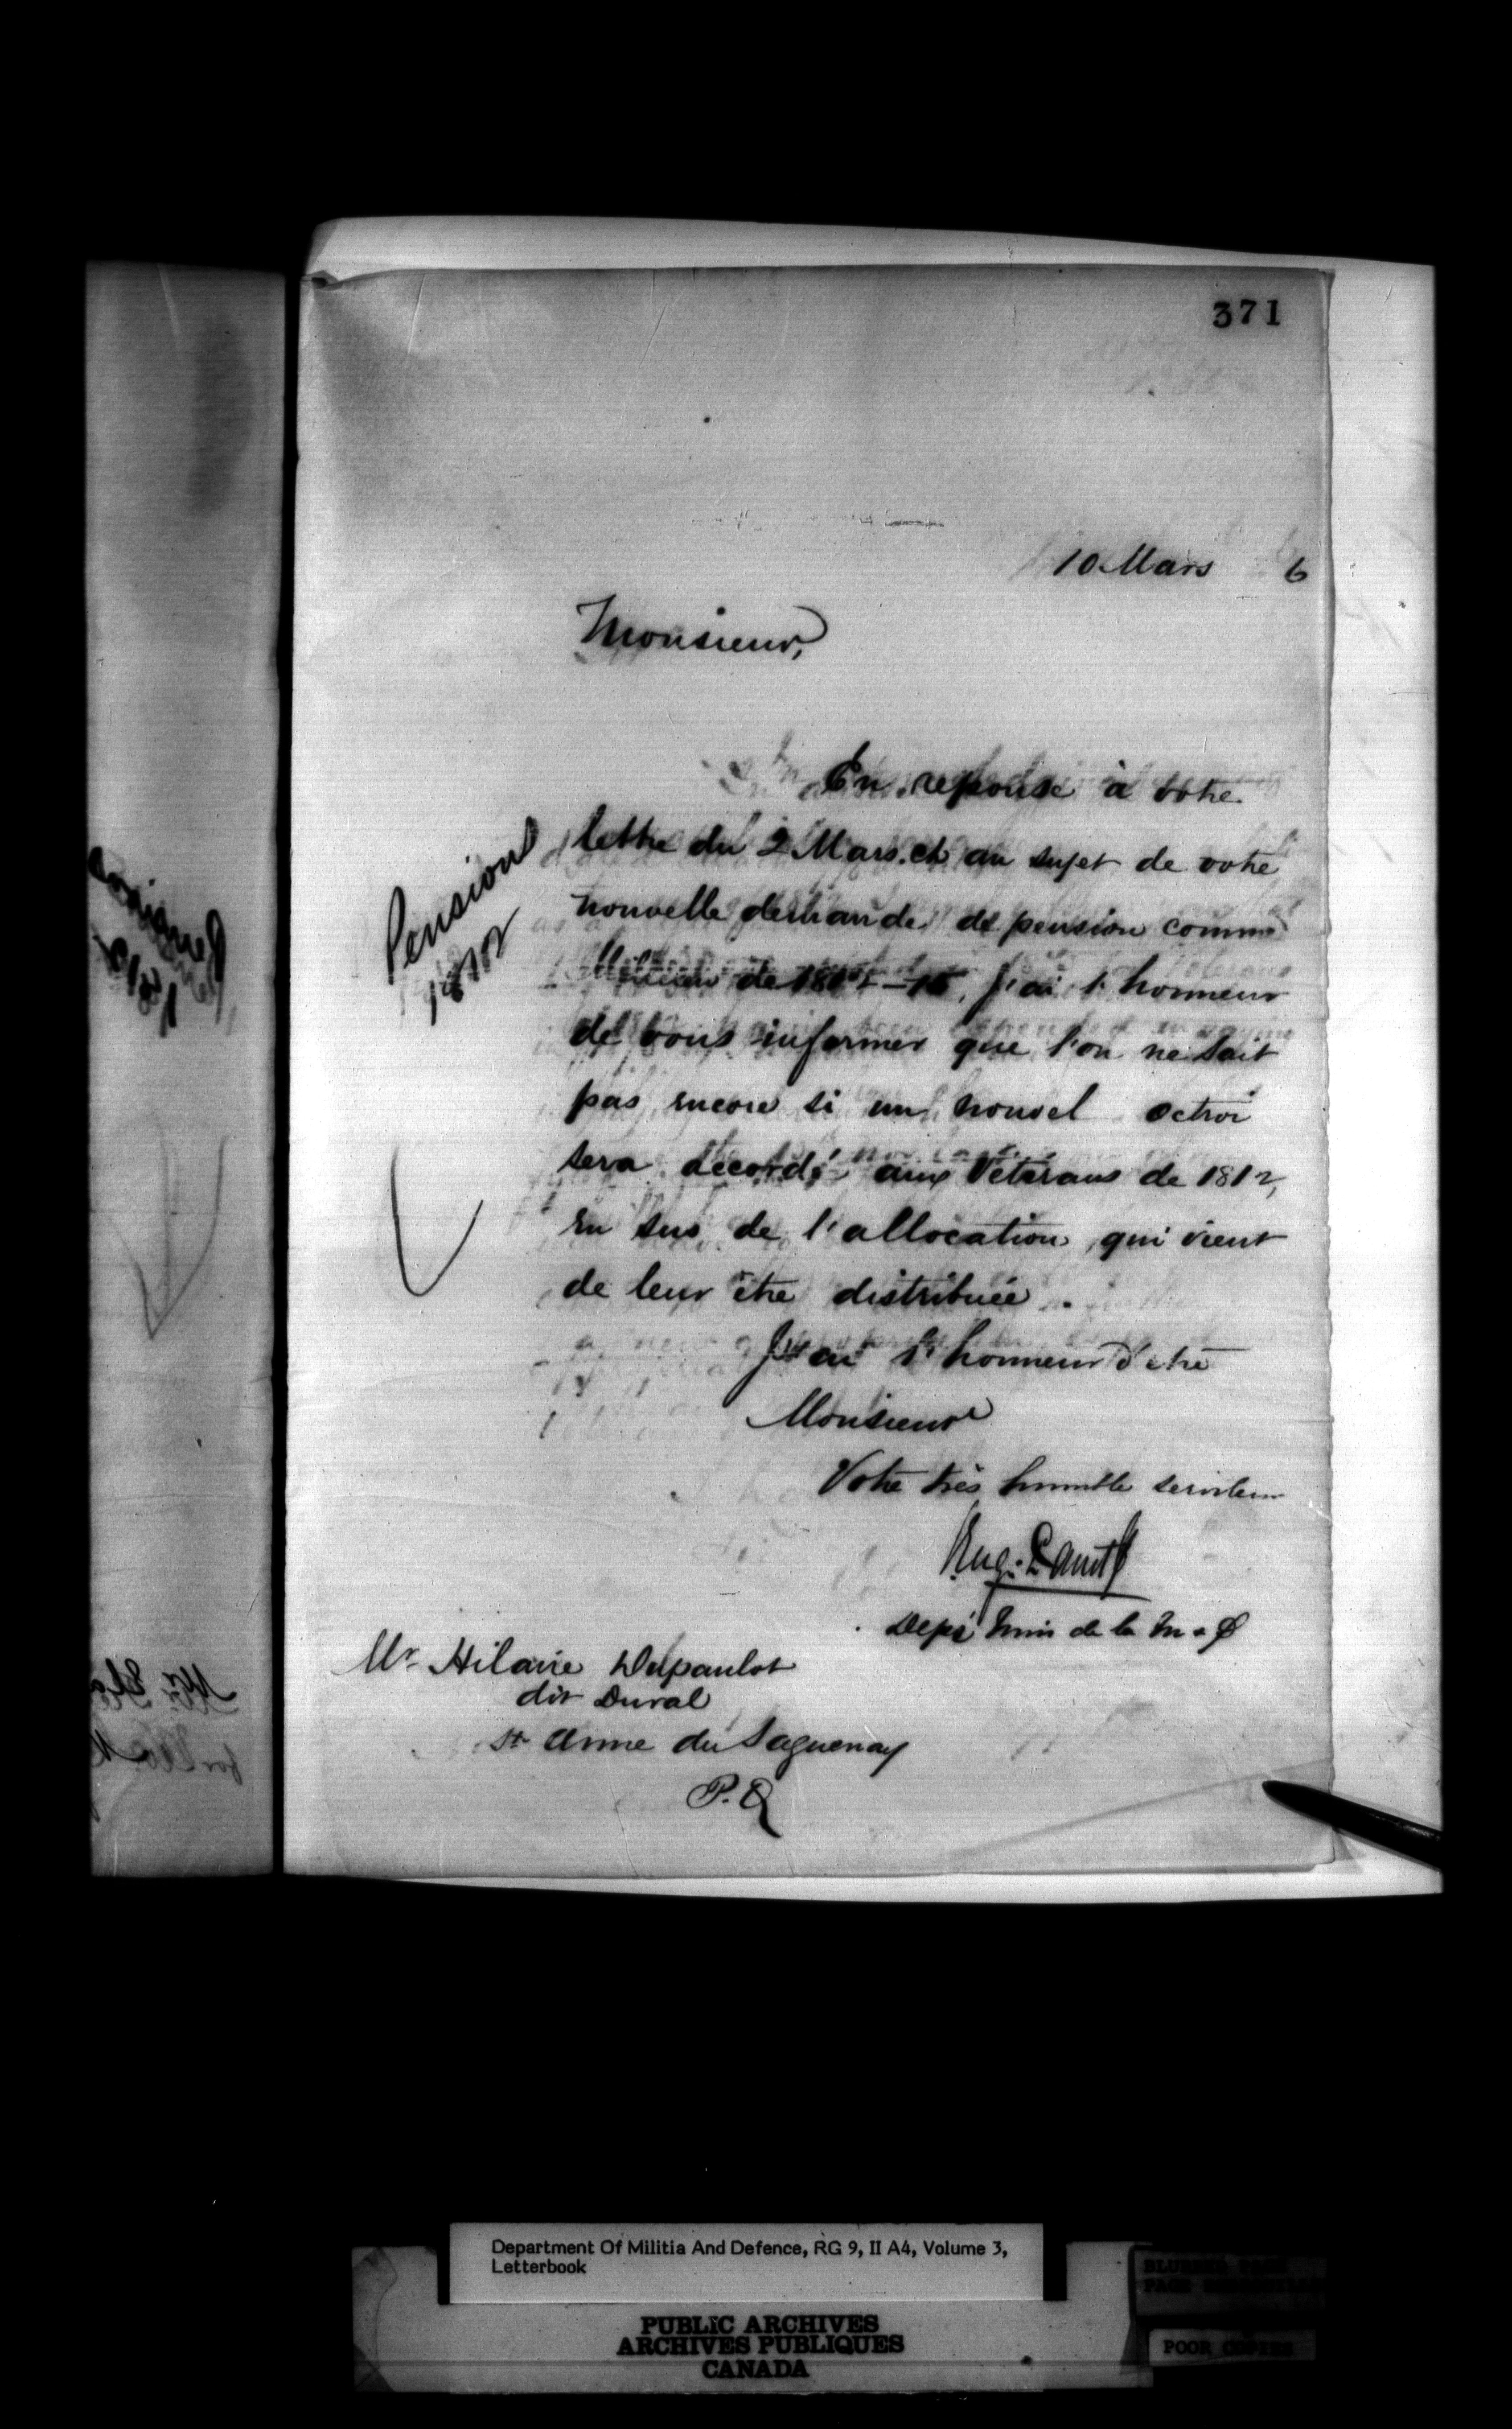 371
10 Mars 6
Monsieur,
En reponse à votre
lettre du 2 Mars. et au sujet de votre
nouvelle demande de pension comme
Milicien de 1812-15, j'ai l'honneur
de vous informer que l'on ne sait
pas encore si un nouvel octroi
sera accordé aux Vétérans de 1812,
en sus de l'allocation qui vient
de leur être distribuée.
J'ai l'honneur d'être
Monsieur
Votre très humble serviteur
Eug. Panet
Dep. Min de la M & D
Mr Hilaire Dupaulot
dit Duval
St Anne du Saguenay
P.Q
Pension
1812
Department Of Militia And Defence, RG 9, II A4, Volume 3,
Letterbook
PUBLIC ARCHIVES
ARCHIVES PUBLIQUES
CANADA
POOR COPIES